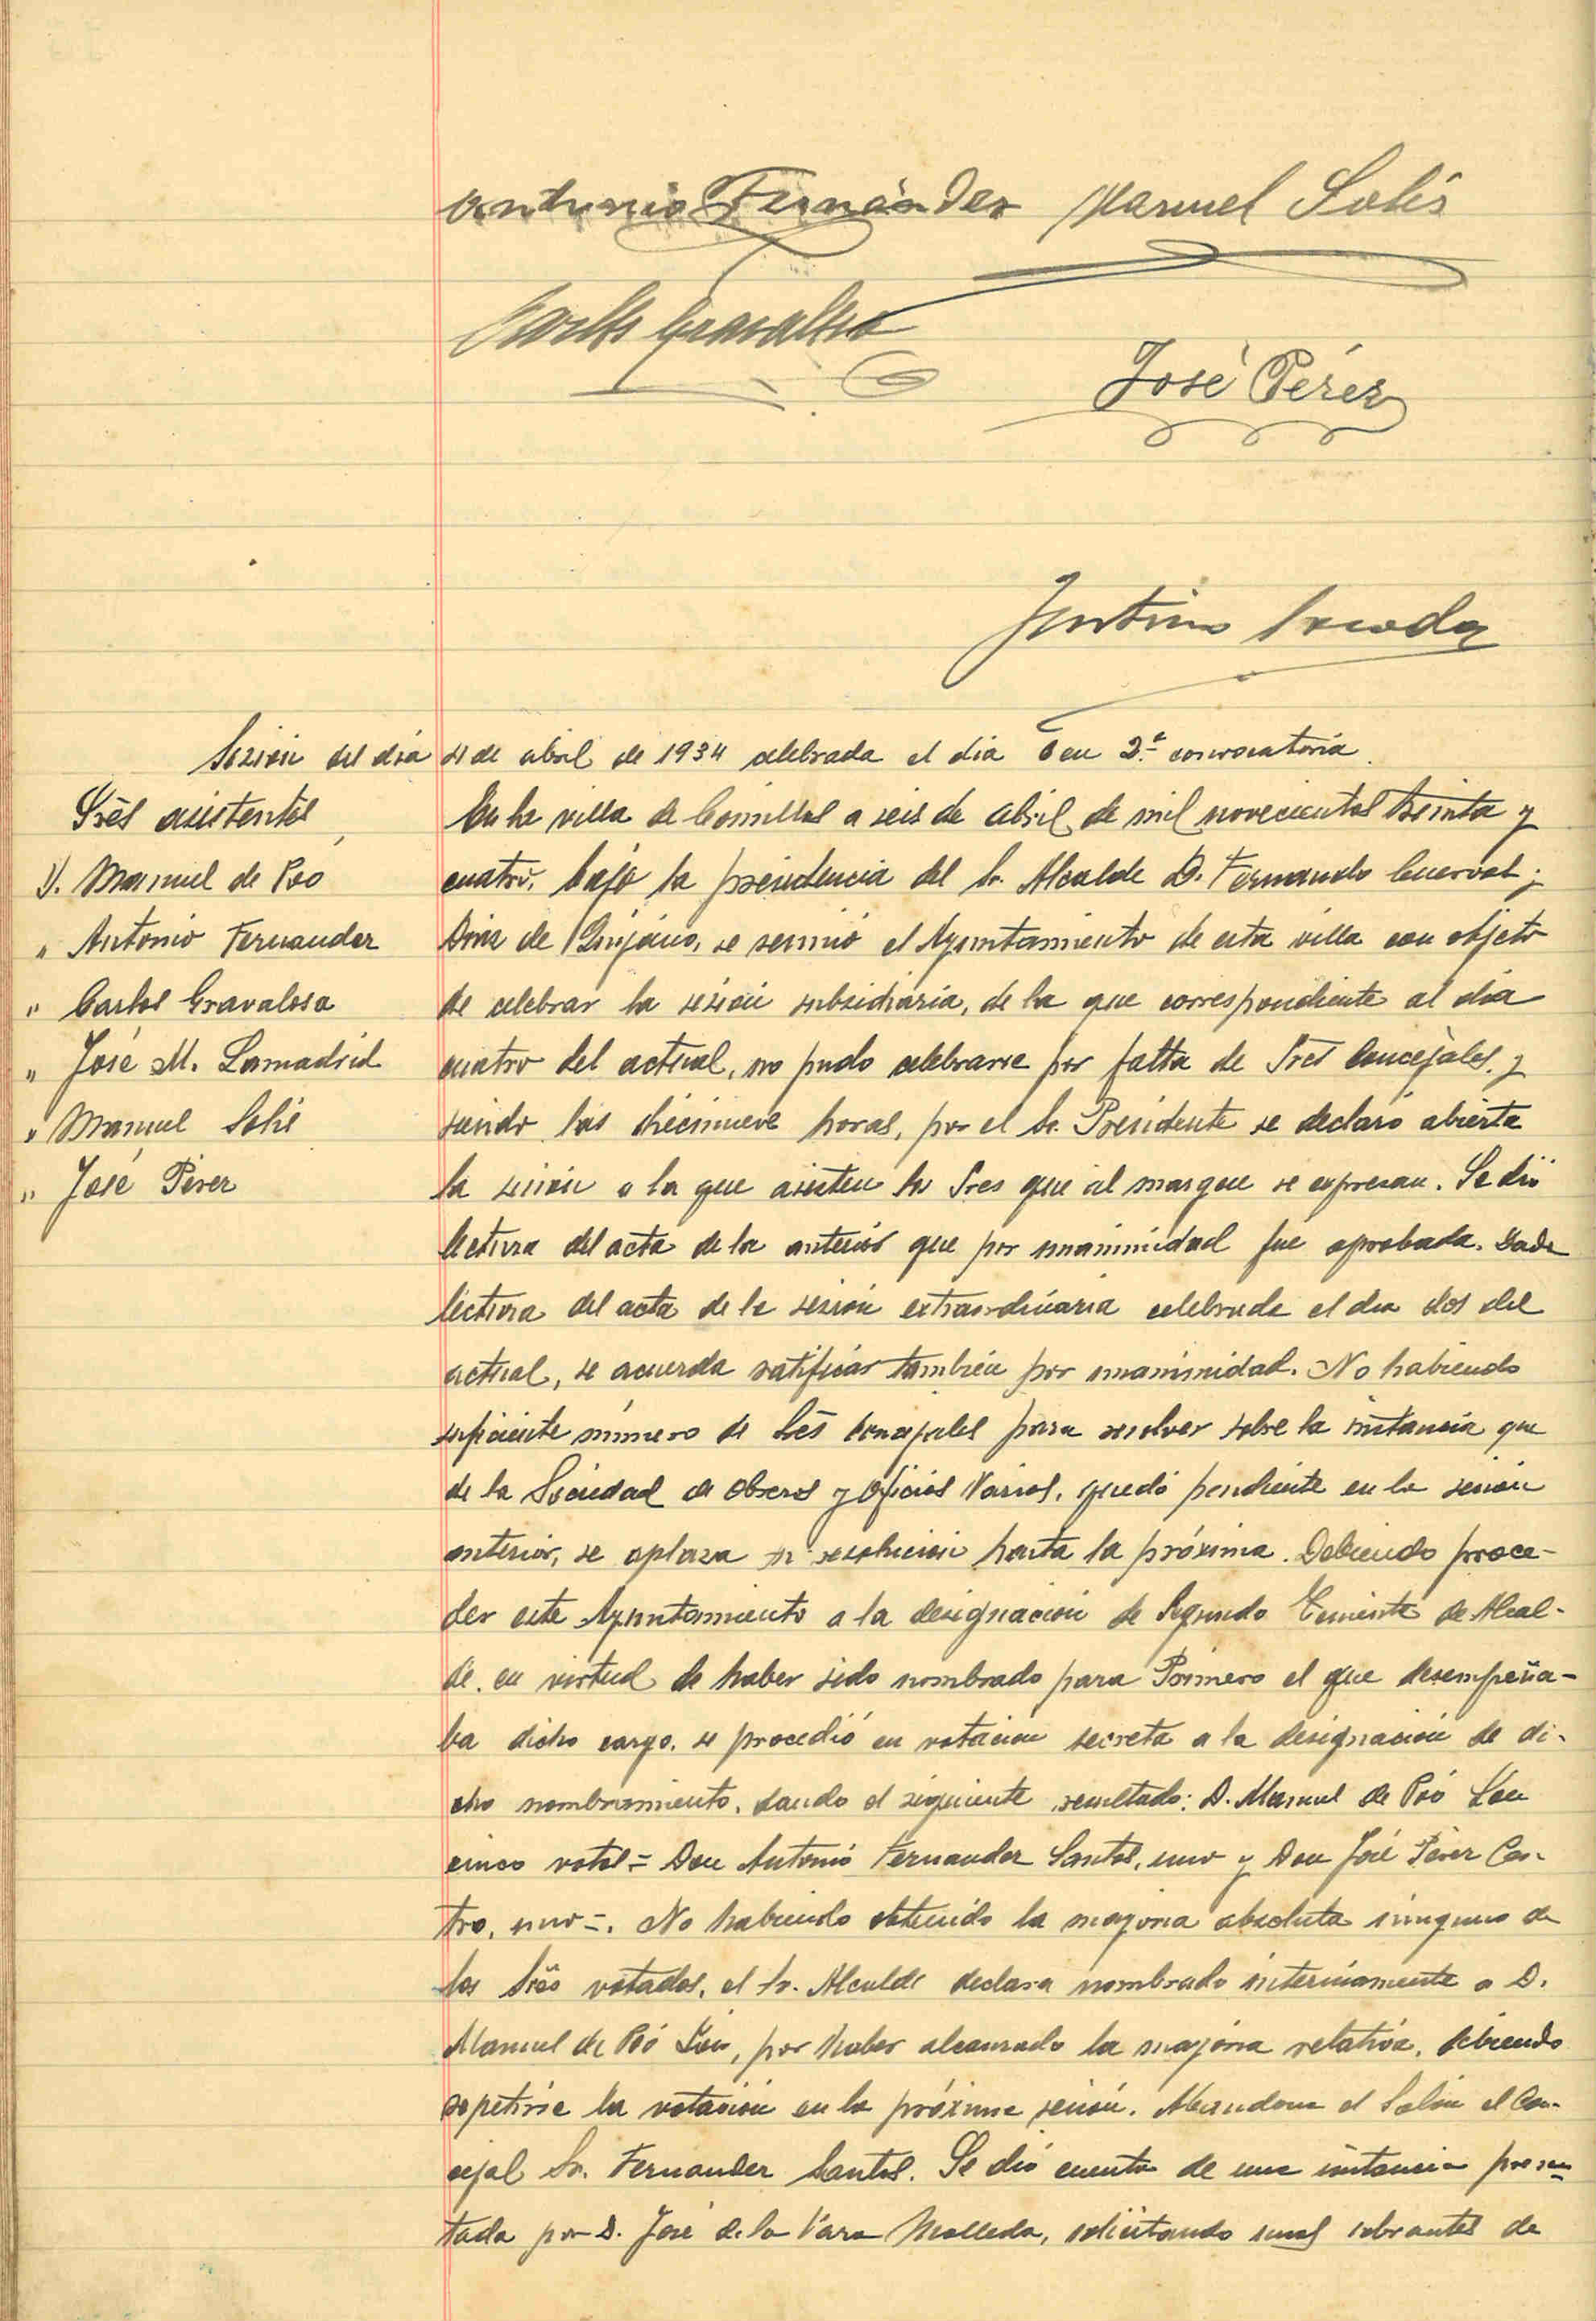 Antonio Fernández Manuel Solís
Carlos Gravalosa
José Pérez
Sesión del día 4 de abril de 1934 celebrada el dia 6 en 2.ª convocatoria.
Srēs asistentes
D. Manuel de Poo
" Antonio Fernandez
" Carlos Gravalosa
" José M. Lamadrid
" Manuel Solis
" José Pérez
En la villa de Comillas a seis de abril de mil novecientos treinta y
cuatro, bajo la presidencia del Sr. Alcalde D. Fernando Cuevas y
Diaz de Quijano, se reunió el Ayuntamiento de esta villa con objeto
de celebrar la sesión subsidiaria, de la que correspondiente al dia
cuatro del actual, no pudo celebrarse por falta de Sres Concejales, y
siendo las diecinueve horas, por el Sr. Presidente se declaró abierta
la sesión a la que asisten los Sres que al margen se expresan. Se dió
lectura del acta de la anterior que por unanimidad fué aprobada. Dada
lectura del acta de la sesión extraordinaria celebrada el dia dos del
actual, se acuerda ratificar también por unanimidad. No habiendo
suficiente número de Srēs Concejales para resolver sobre la instancia que
de la Sociedad de Obreros y Oficios Varios, quedó pendiente en la sesión
anterior, se aplaza su resolución hasta la próxima. Debiendo proce-
der este Ayuntamiento a la designación de Segundo Teniente de Alcal-
de, en virtud de haber sido nombrado para Primero el que desempeña-
ba dicho cargo, se procedió en votación secreta a la designación de di-
cho nombramiento, dando el siguiente resultado: D. Manuel de Poó
cinco votos = Don Antonio Fernandez Santos, uno y Don José Pérez Cas-
tro, uno =. No habiendo obtenido la mayoria absoluta ninguno de
los Srēs votados, el Sr. Alcalde declara nombrado interinamente a D.
Manuel de Poó, por haber alcanzado la mayoria relativa, debiendo
repetirse la votación en la próxima sesión. Abandona el Salón el Con-
cejal Sr. Fernandez Santos. Se dió cuenta de una instancia presen-
tada por D. José de la Vara Molleda, solicitando unos sobrantes de